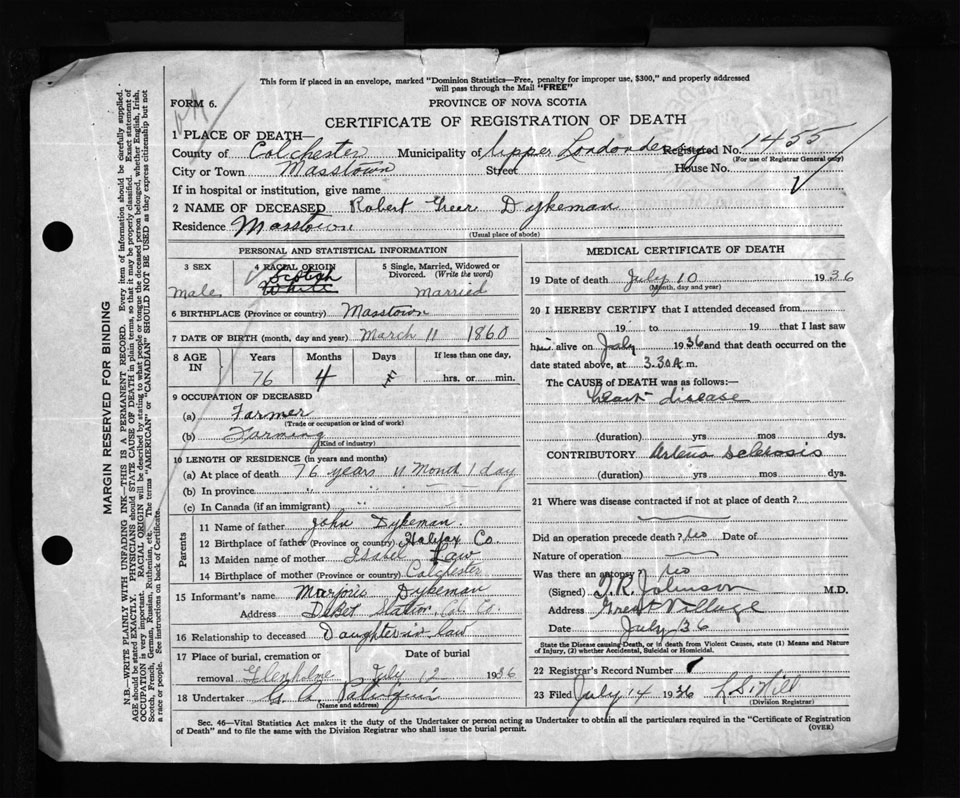 This form if placed in an envelope, marked "Dominion Statistics—Free, penalty for improper use, $300," and properly addressed
will pass through the Mail "FREE"
FORM 6.
PROVINCE OF NOVA SCOTIA
CERTIFICATE OF REGISTRATION OF DEATH
1 PLACE OF DEATH—
County of Colchester Municipality of Upper Londonderry Registered No. 1455
(For use of Registrar General only)
City or Town Masstown Street House No.
If in hospital or institution, give name
2 NAME OF DECEASED Robert Greer Dykeman
Residence Masstown
(Usual place of abode)
PERSONAL AND STATISTICAL INFORMATION
3 SEX 4 RACIAL ORIGIN 5 Single, Married, Widowed or
Divorced. (Write the word)
Scotch
Male White Married
6 BIRTHPLACE (Province or country) Masstown
7 DATE OF BIRTH (month, day and year) March 11 1860
8 AGE IN Years Months Days If less than one day,
76 4 hrs. or min.
9 OCCUPATION OF DECEASED
(a) Farmer
(Trade or occupation or kind of work)
(b) Farming
(Kind of industry)
10 LENGTH OF RESIDENCE (in years and months)
(a) At place of death 76 years 11 Month 1 day
(b) In province " "
(c) In Canada (if an immigrant) " "
Parents
11 Name of father John Dykeman
12 Birthplace of father (Province or country) Halifax Co
13 Maiden name of mother Isabel Law
14 Birthplace of mother (Province or country) Colchester
15 Informant's name Marjorie Dykeman
Address DeBert Station, Col. Co.
16 Relationship to deceased Daughter in law
17 Place of burial, cremation or Date of burial
removal Glenholme July 12 1936
18 Undertaker G. A.
(Name and address)
MEDICAL CERTIFICATE OF DEATH
19 Date of death July 10 1936
(Month, day and year)
20 I HEREBY CERTIFY that I attended deceased from
19 to 19 that I last saw
him alive on July 1936 and that death occurred on the
date stated above, at 3.30 A.m.
The CAUSE of DEATH was as follows:—
heart disease
(duration) yrs mos dys.
CONTRIBUTORY Arterio Sclerosis
(duration) yrs mos dys.
21 Where was disease contracted if not at place of death?
Did an operation precede death? no Date of
Nature of operation
Was there an autopsy? no
(Signed) T. R. Johnson M.D.
Address Great Village
Date July 36
State the Disease causing Death, or if death from Violent Causes, state (1) Means and Nature
of Injury, (2) whether Accidental, Suicidal or Homicidal.
22 Registrar's Record Number
23 Filed July 14 1936 L. S. Hill
(Division Registrar)
Sec. 46—Vital Statistics Act makes it the duty of the Undertaker or person acting as Undertaker to obtain all the particulars required in the "Certificate of Registration
of Death" and to file the same with the Division Registrar who shall issue the burial permit.
(OVER)
MARGIN RESERVED FOR BINDING
N.B.—WRITE PLAINLY WITH UNFADING INK—THIS IS A PERMANENT RECORD. Every item of information should be carefully supplied.
AGE should be stated EXACTLY. PHYSICIANS should STATE CAUSE OF DEATH in plain terms, so that it may be properly classified. Exact statement of
OCCUPATION is very important. RACIAL ORIGIN will be described by stating to what people or tongue the deceased person belonged, whether English, Irish,
Scotch, French, German, Russian, Ruthenian, etc. The terms "AMERICAN" or "CANADIAN" SHOULD NOT BE USED as they express citizenship but not
a race or people. See instructions on back of Certificate.